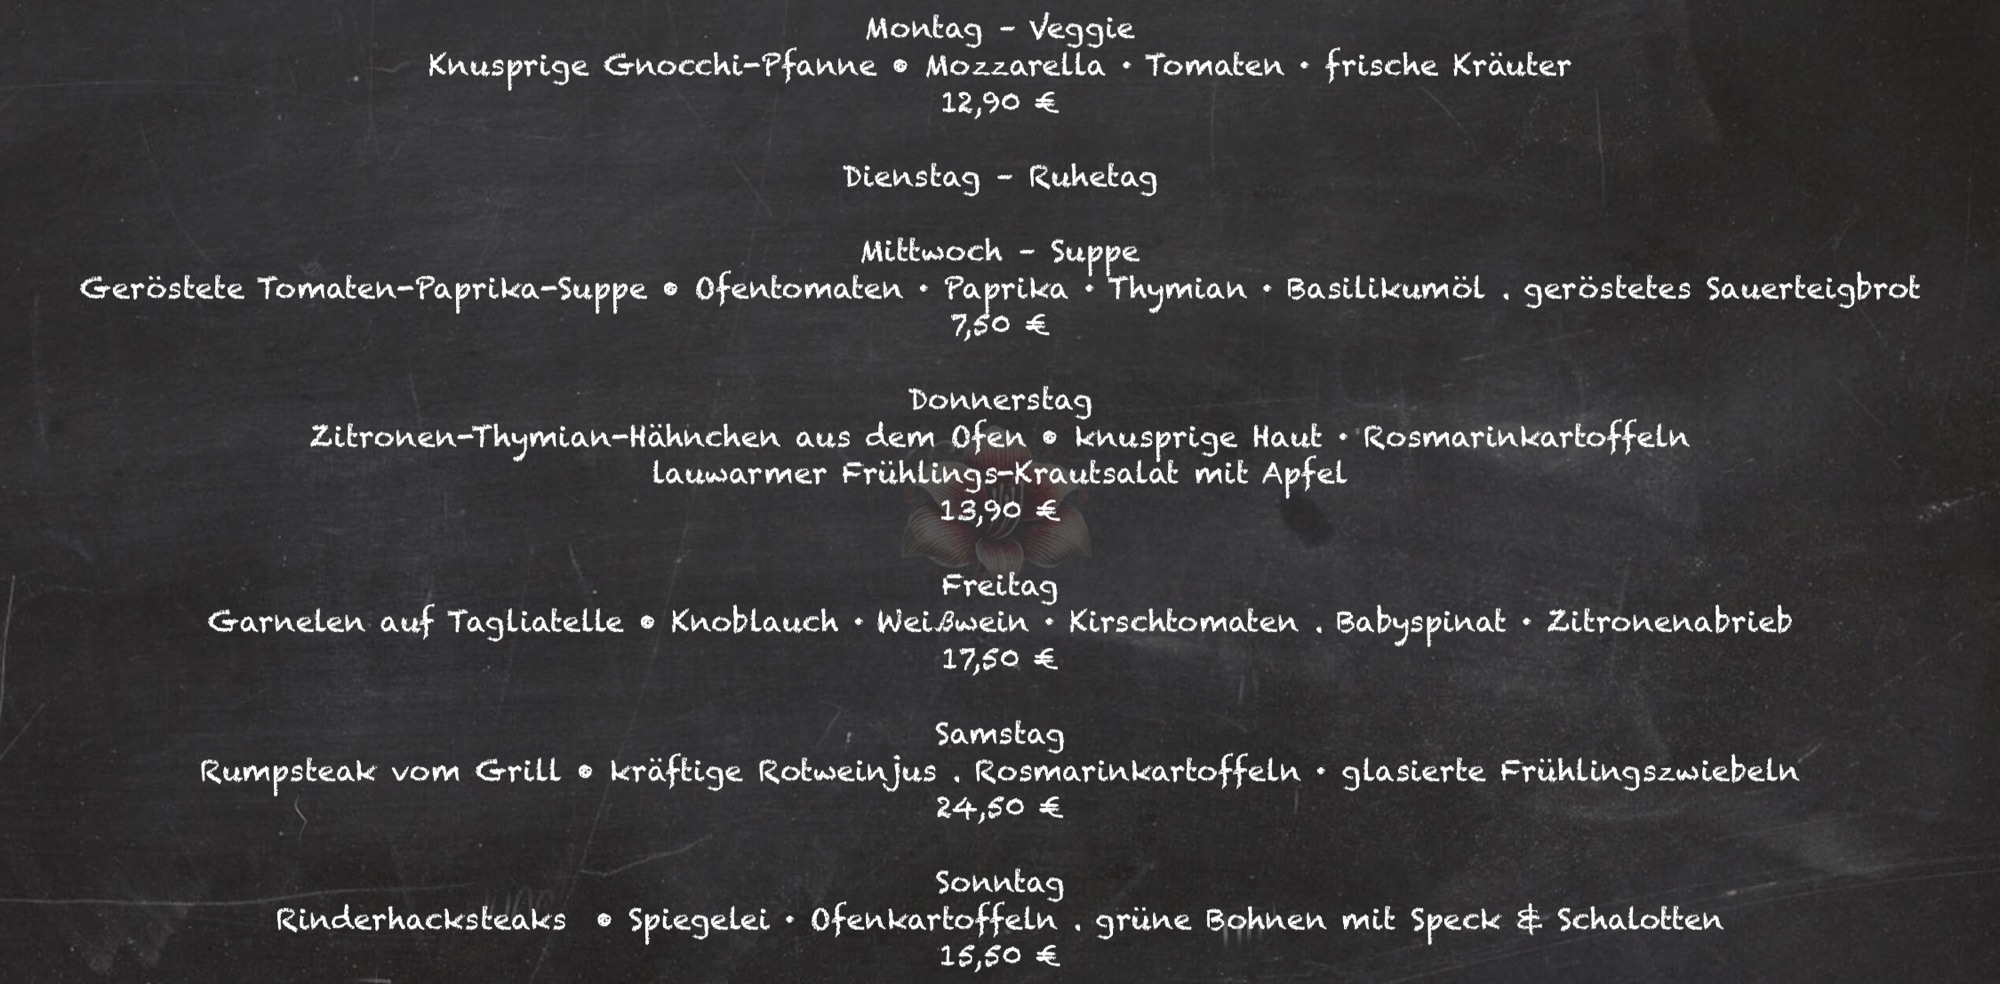 Montag - Veggie
Knusprige Gnocchi-Pfanne • Mozzarella · Tomaten · frische Kräuter
12,90 €
Dienstag - Ruhetag
Mittwoch - Suppe
Geröstete Tomaten-Paprika-Suppe • Ofentomaten · Paprika · Thymian · Basilikumöl . geröstetes Sauerteigbrot
7,50 €
Donnerstag
Zitronen-Thymian-Hähnchen aus dem Ofen • knusprige Haut · Rosmarinkartoffeln
lauwarmer Frühlings-Krautsalat mit Apfel
13,90 €
Freitag
Garnelen auf Tagliatelle • Knoblauch · Weißwein · Kirschtomaten . Babyspinat · Zitronenabrieb
17,50 €
Samstag
Rumpsteak vom Grill • kräftige Rotweinjus . Rosmarinkartoffeln · glasierte Frühlingszwiebeln
24,50 €
Sonntag
Rinderhacksteaks • Spiegelei · Ofenkartoffeln . grüne Bohnen mit Speck & Schalotten
15,50 €